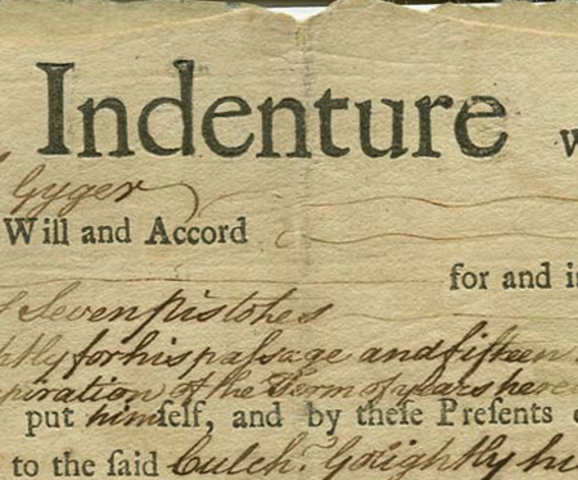 Indenture w
Gyger
Will and Accord
for and i
Seven pistoles
for his paſsage and fifteen
piration of the Term of years here
put himſelf, and by theſe Preſents
to the ſaid Culch. Golightly hi